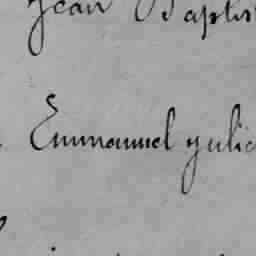 Jean Baptis
Emmanuel Julie